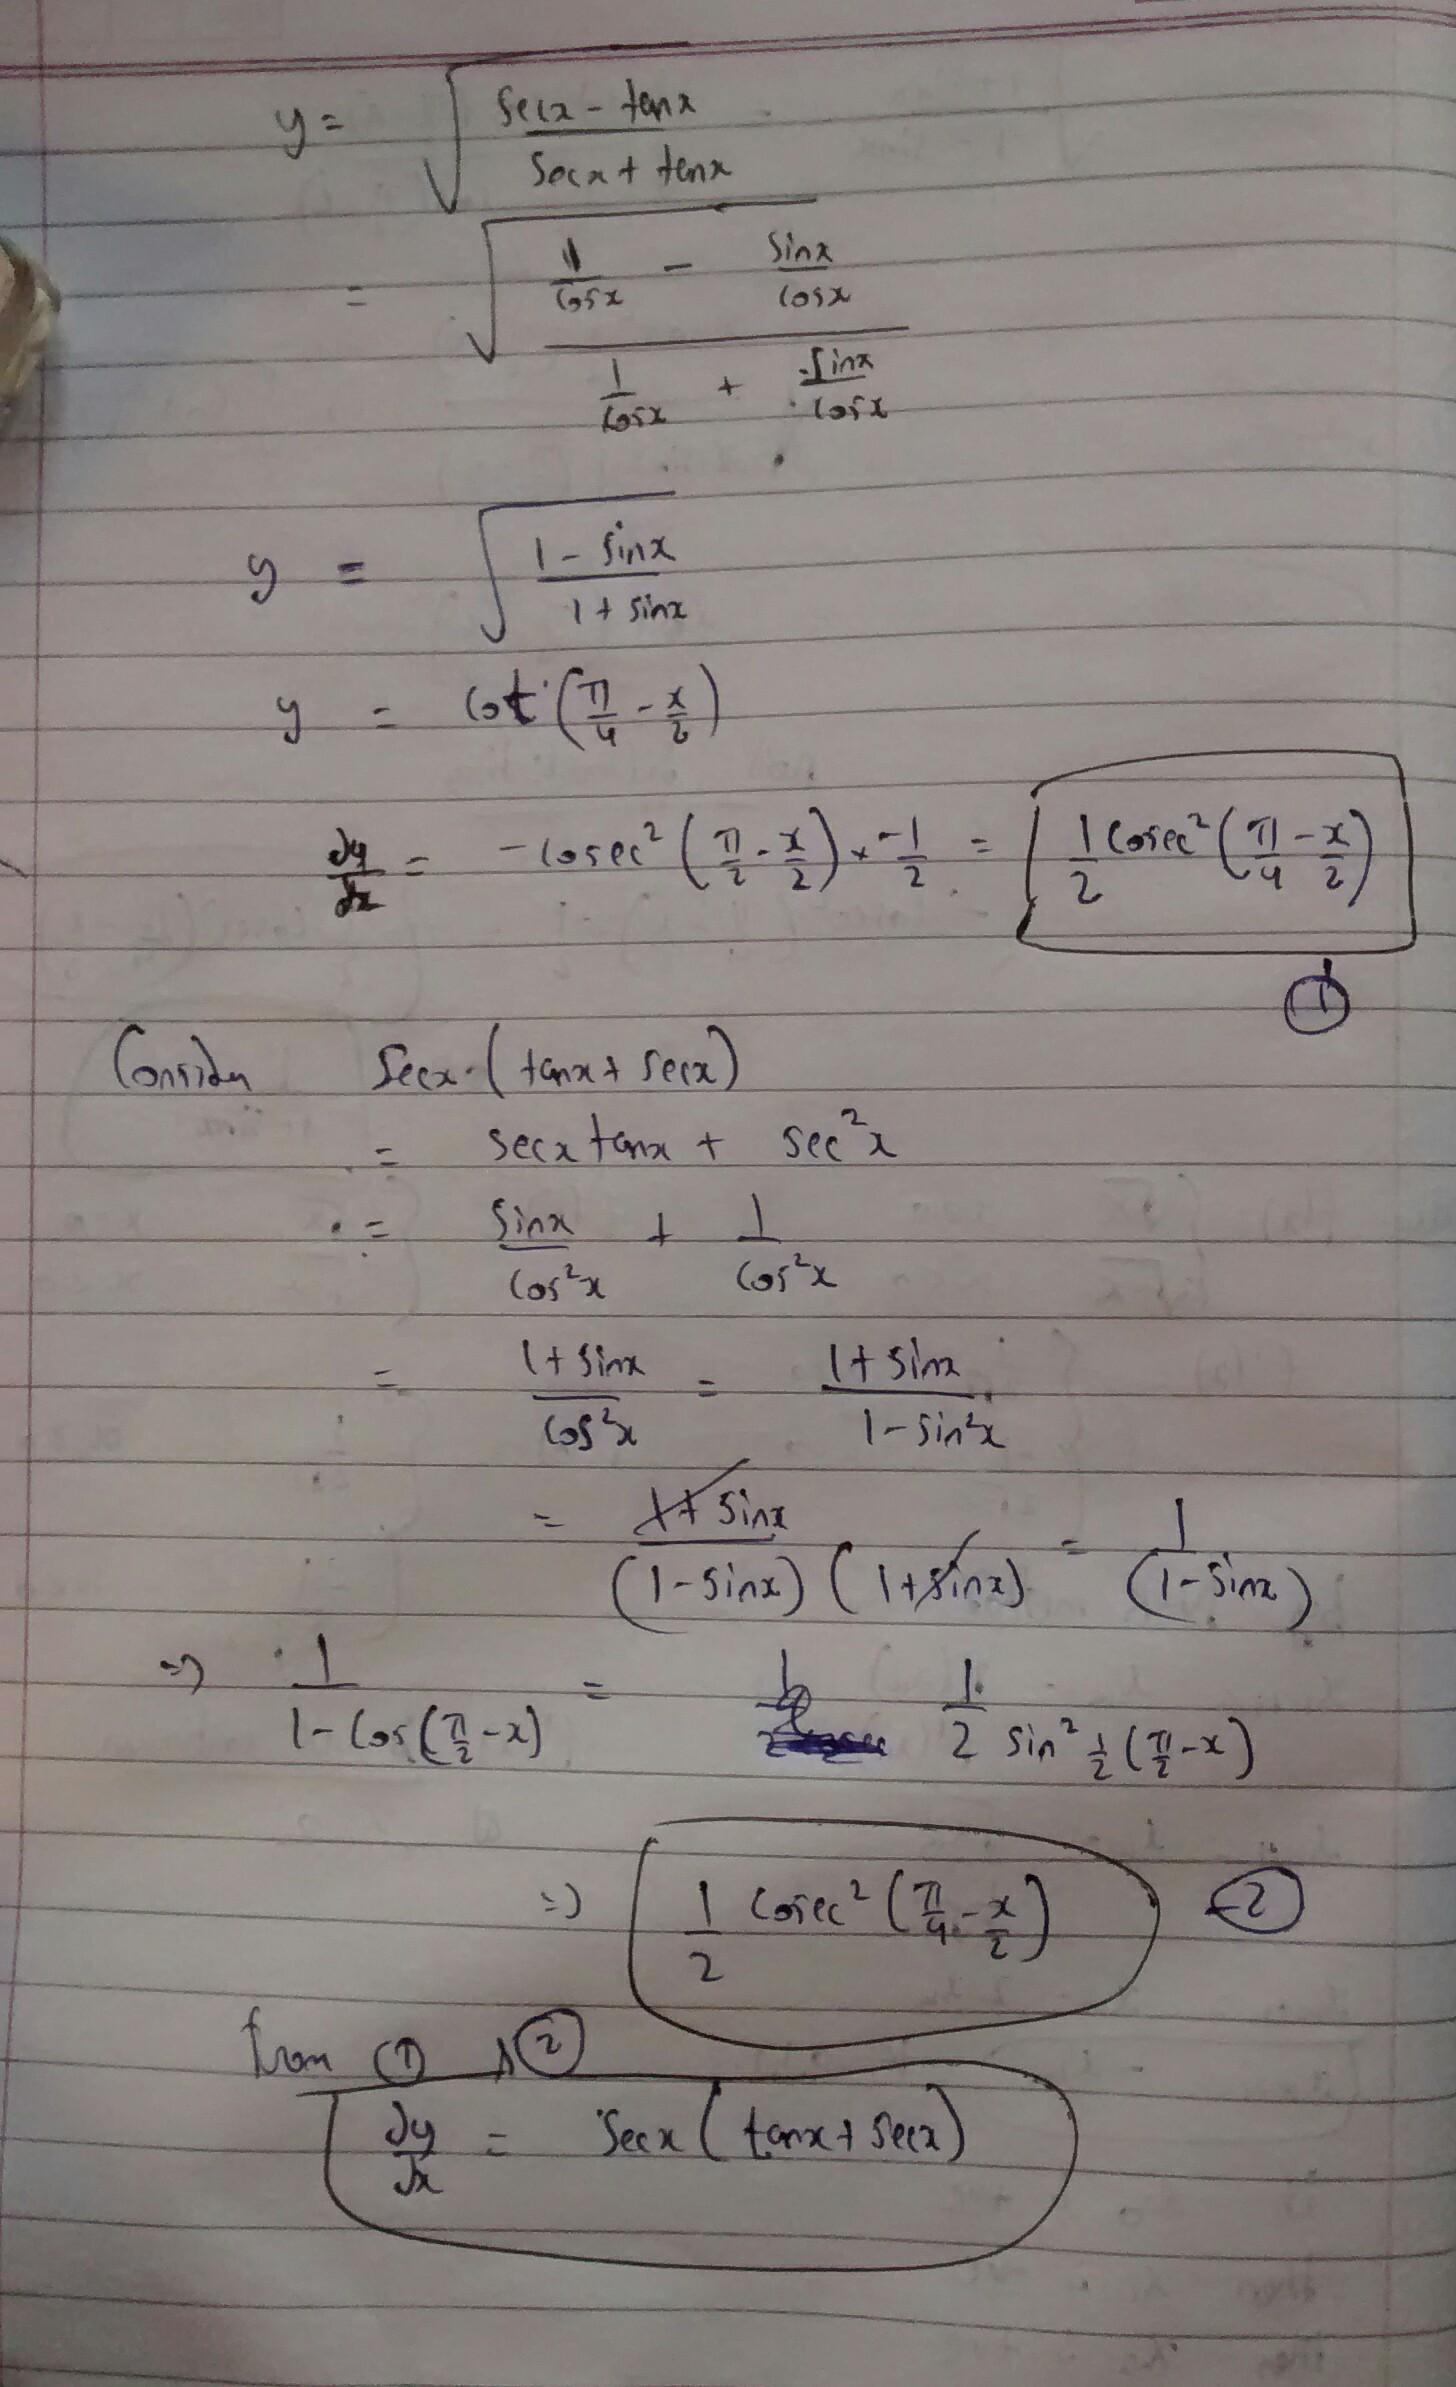 y = √((secx - tanx)/(secx + tanx))
= √((1/cosx - sinx/cosx)/(1/cosx + sinx/cosx))
y = √((1 - sinx)/(1 + sinx))
y = cot(π/4 - x/2)
dy/dx = -cosec²(π/2 - x/2) × -1/2 = 1/2 cosec²(π/4 - x/2)
①
Consider secx·(tanx + secx)
= secx tanx + sec²x
= sinx/cos²x + 1/cos²x
= (1 + sinx)/cos²x = (1 + sinx)/(1 - sin²x)
= (1 + sinx)/((1 - sinx)(1 + sinx)) = 1/(1 - sinx)
⇒ 1/(1 - cos(π/2 - x)) = 1/(2 sin² 1/2 (π/2 - x))
⇒ 1/2 cosec²(π/4 - x/2) - ②
from ① & ②
dy/dx = secx(tanx + secx)